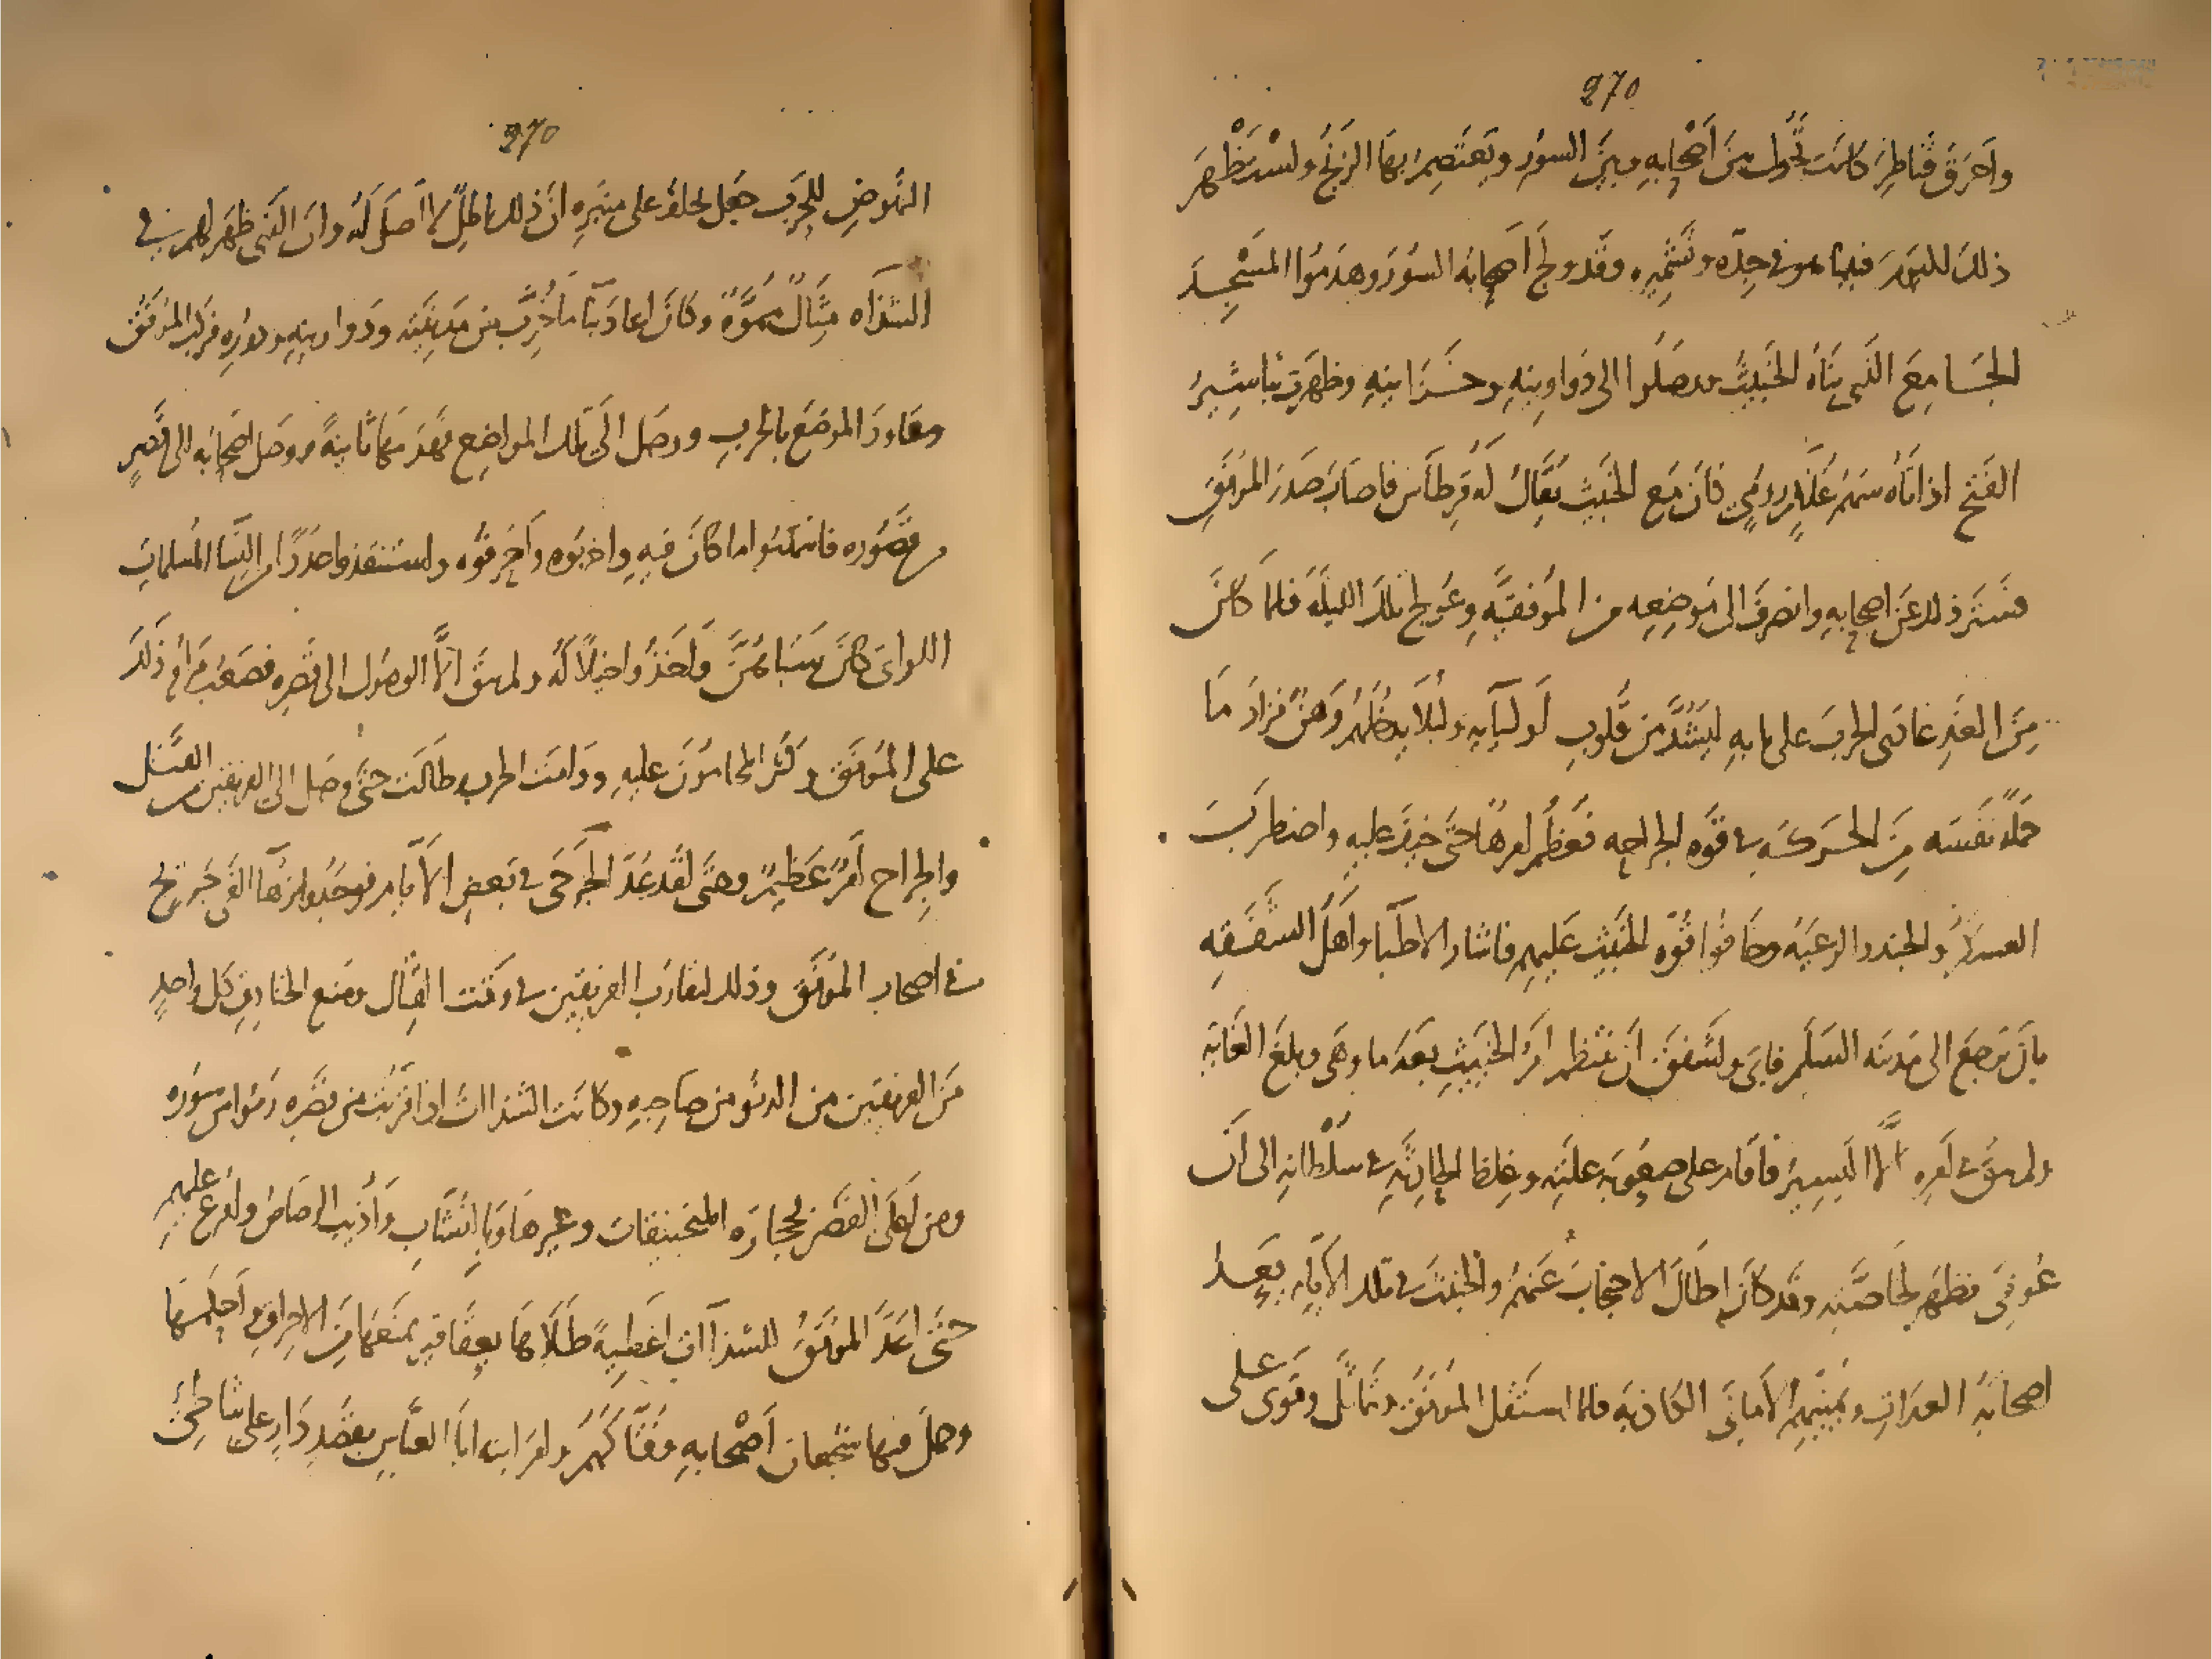 270
واحرق قناطر كانت تحول بين أصحابه وبين السور ويعتصم بها الزنج واستظهر
ذلك اليوم فبينا هو في جده وتشميره وقد ولج أصحابه السور وهدموا المسجد
الجامع الذي بناه الخبيث ووصلوا الى دواوينه وخزاينه وظهرت تباشير
الفتح اذ اتاه سهم غلام رومي كان مع الخبيث يقال له قرطاس فاصاب صدر الموفق
فستر ذلك عن اصحابه وانصرف الى موضعه من الموفقيه وعولج تلك الليلة فلما كان
من الغد غادى الحرب على ما به ليشد من قلوب اوليايه وليلا يدخلهم وهن فزاد ما
حمله نفسه من الحركه في قوه الجراحه فعظم امرها حتى خيف عليه واضطرب
العسكر والجند والرعيه وخافوا قوه الخبيث عليهم فاشار الاطبا واهل الشفقه
بان يرجع الى مدينه السلم فابى واشفق ان ينتظم امر الخبيث بعد ما وهى وبلغ الغايه
ولم يبق في امره الا اليسير فاقام على صعوبة علته وغلظ الحادثه في سلطانه الى أن
عوفي فظهر لخاصته وقد كان اطال الاحتجاب عنهم والخبيث في تلك الايام يعد
اصحابه العدات ويمنيهم الاماني الكاذبه فلما استقل الموفق وتماثل وقوى على
270
النهوض للحرب جعل يحلف على منبره ان ذلك باطل لا اصل له وان الذي ظهر لهم في
الشذاه مثال مموه وكان اعاد بنا ما خرب من مدينته ودواوينه ودوره فركب الموفق
وعاود الموضع بالحرب ووصل الى تلك المواضع فهدمها ثانية ووصل اصحابه الى قصر
من قصوره فانتهبوا ما كان فيه واخربوه واحرقوه واستنقذوا عددا من النسا المسلمات
اللواتي كان سباهن واخذوا خيلا له ولم يبق الا الوصول الى قصره فصعب مرام ذلك
على الموفق وكثر المحامون عليه ودامت الحرب وطالت حتى وصل الى الفريقين من القتل
والجراح امر عظيم وحتى لقد عد الجرحى في بعض الايام فوجدوا زهآ الفي جريح
في اصحاب الموفق وذلك لتقارب الفريقين في وقت القتال ومنع الخنادق كل واحد
من الفريقين من الدنو من صاحبه وكانت الشذاات اذا قربت من قصره رموا من سوره
ومن اعلى القصر بحجاره المنجنيقات وغيرها وبالنشاب وأذيب الرصاص وافرغ عليهم
حتى اعد الموفق للشذاآت اغطية طلاها بعقاقير تمنعها من الاحراق واحكمها
وحمل فيها شجعان أصحابه وفتاكهم وامر ابنه ابا العباس بقصد دار على شاطئ